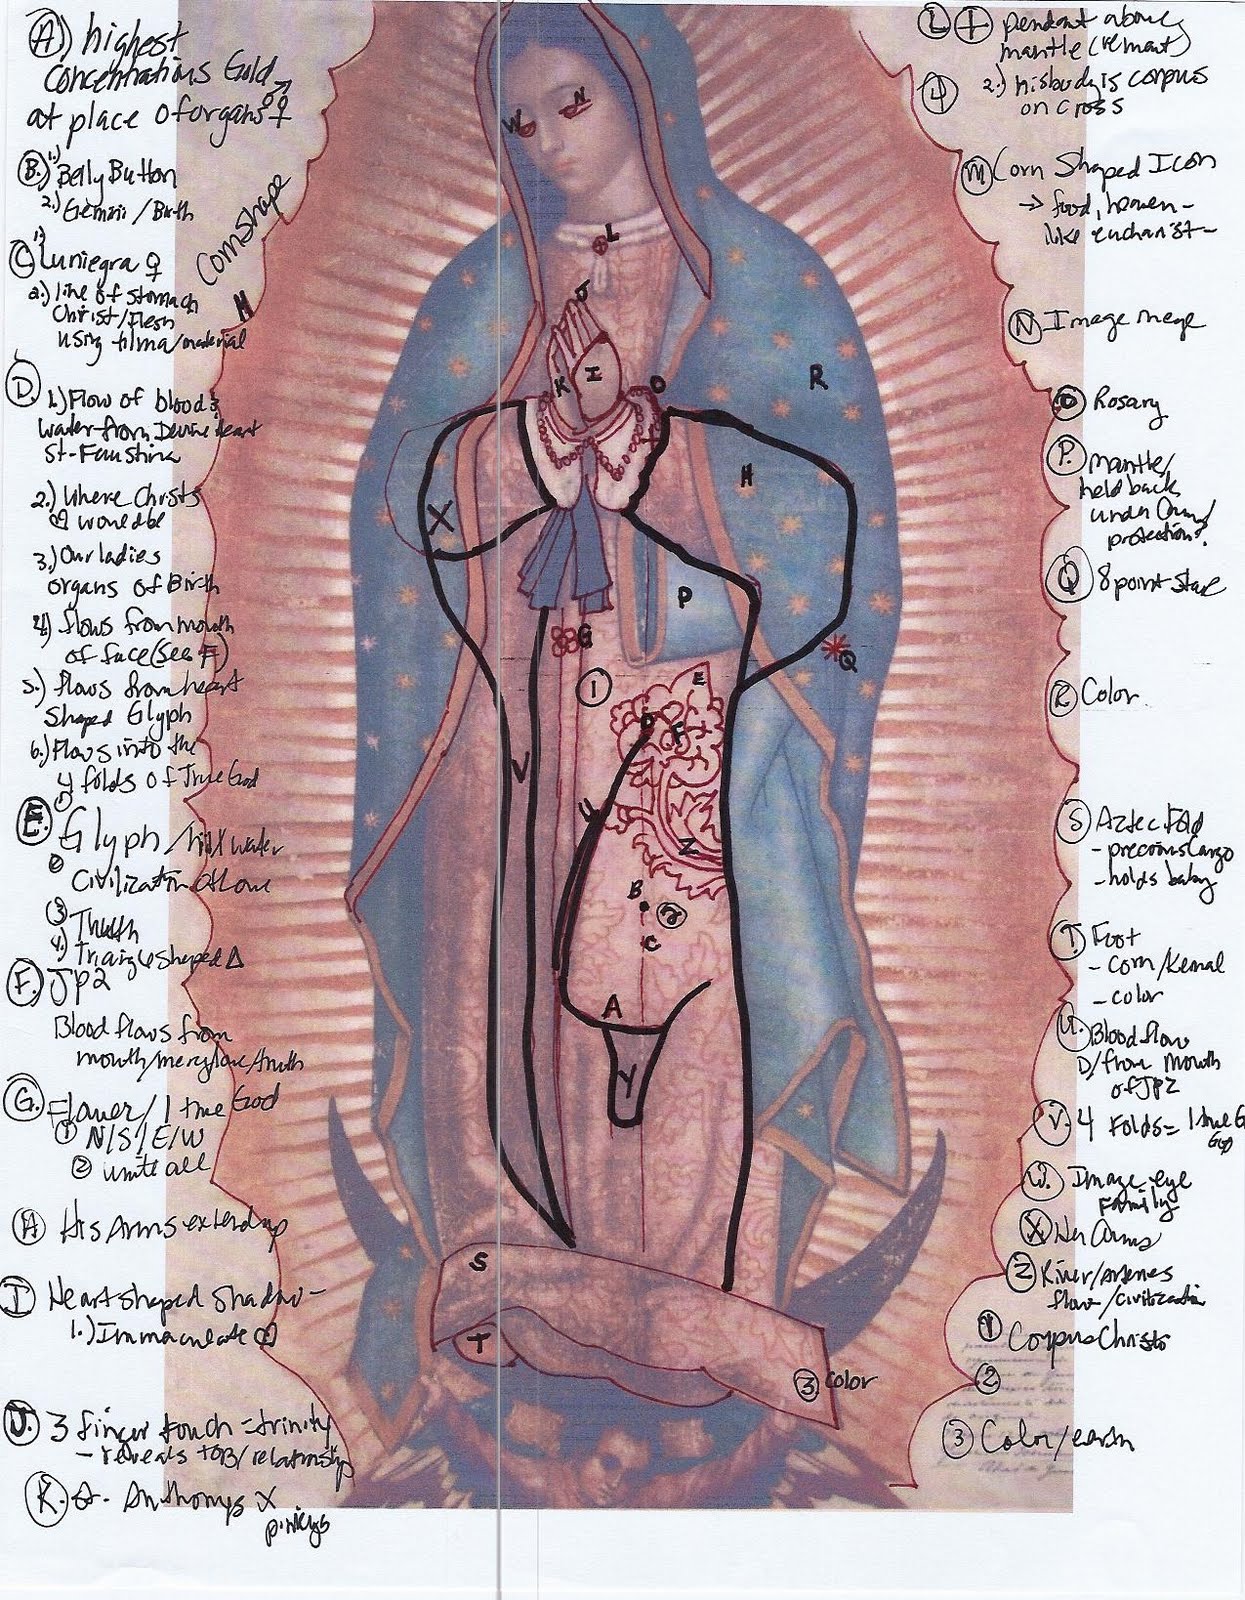 A) highest
concentrations Gold
at place of organs ♂♀
B. 1.) Belly Button
2.) Gemini / Birth
Cornshape
C 1.) Luniegra ♀
2.) line of stomach
Christ/flesh
using tilma/material
D
1.) Flow of blood &
water from Devine heart
St-Faustina
2.) where Christs
would be
3.) Our ladies
organs of Birth
4.) flows from mouth
of face (see F)
5.) flows from heart
shaped Glyph
6.) Flows into the
4 folds of True God
E. 1 Glyph / hill water
2 Civilization of Love
3 Truth
4.) Triangle shaped Δ
F. JP2
Blood flows from
mouth/mercy/love/truth
G. Flower / 1 true God
1 N/S/E/W
2 unite all
H His Arms extend up
I Heart shaped shadow -
1.) Immaculate
J. 3 finger touch = trinity
- reveals TOB/relationship
K. St. Anthonys X
pinkys
L pendant above
mantle
2.) his body is corpus
on cross
M Corn Shaped Icon
→ food, heaven -
like eucharist -
N Image
O Rosary
P. Mantle/
held back
under
protection?
Q 8 point star
R Color
S Aztec Fold
- precious cargo
- holds baby
T. Foot
- corn/kernal
- color
U. Blood flow
D/from mouth
of JP2
V. 4 Folds = 1 true G
God
W. Image-eye
Family
X Her Arms
Z River/arteries
flow/civilization
Y Corpus Christi
2
3 Color/earth
W
N
L
J
K
I
O
R
H
H
X
P
G
Q
1
E
D
F
V
U
Z
B
2
C
A
Y
S
T
3 Color